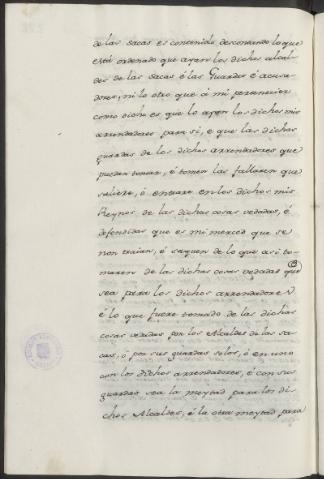 de las sacas es contenido descontando lo que
está ordenado que ayan los dichos alcal-
des de las sacas é las Guardas é acusa-
dores, ni lo otro que á mi pertenecier
como dicho es que lo ayan los dichos mis
arrendadores para sí, e que las dichas
guardas de los dichos arrendadores que
puedan tomar, é tomen las fallaren que
salieren, ó entraren en los dichos mis
Reynos de las dichas cosas vedadas, é
defendidas que es mi merced que se
non traian, é saquen de lo que asi to-
maren de las dichas cosas vedadas que
sea para los dichos arrendadores
é lo que fuere tomado de las dichas
cosas vedadas por los Alcaldes de las sa-
cas, ó por sus guardas solos, ó en uno
con los dichos arrendadores, é con sus
guardas sea la meytad para los di-
chos Alcaldes, é la otra meytad para